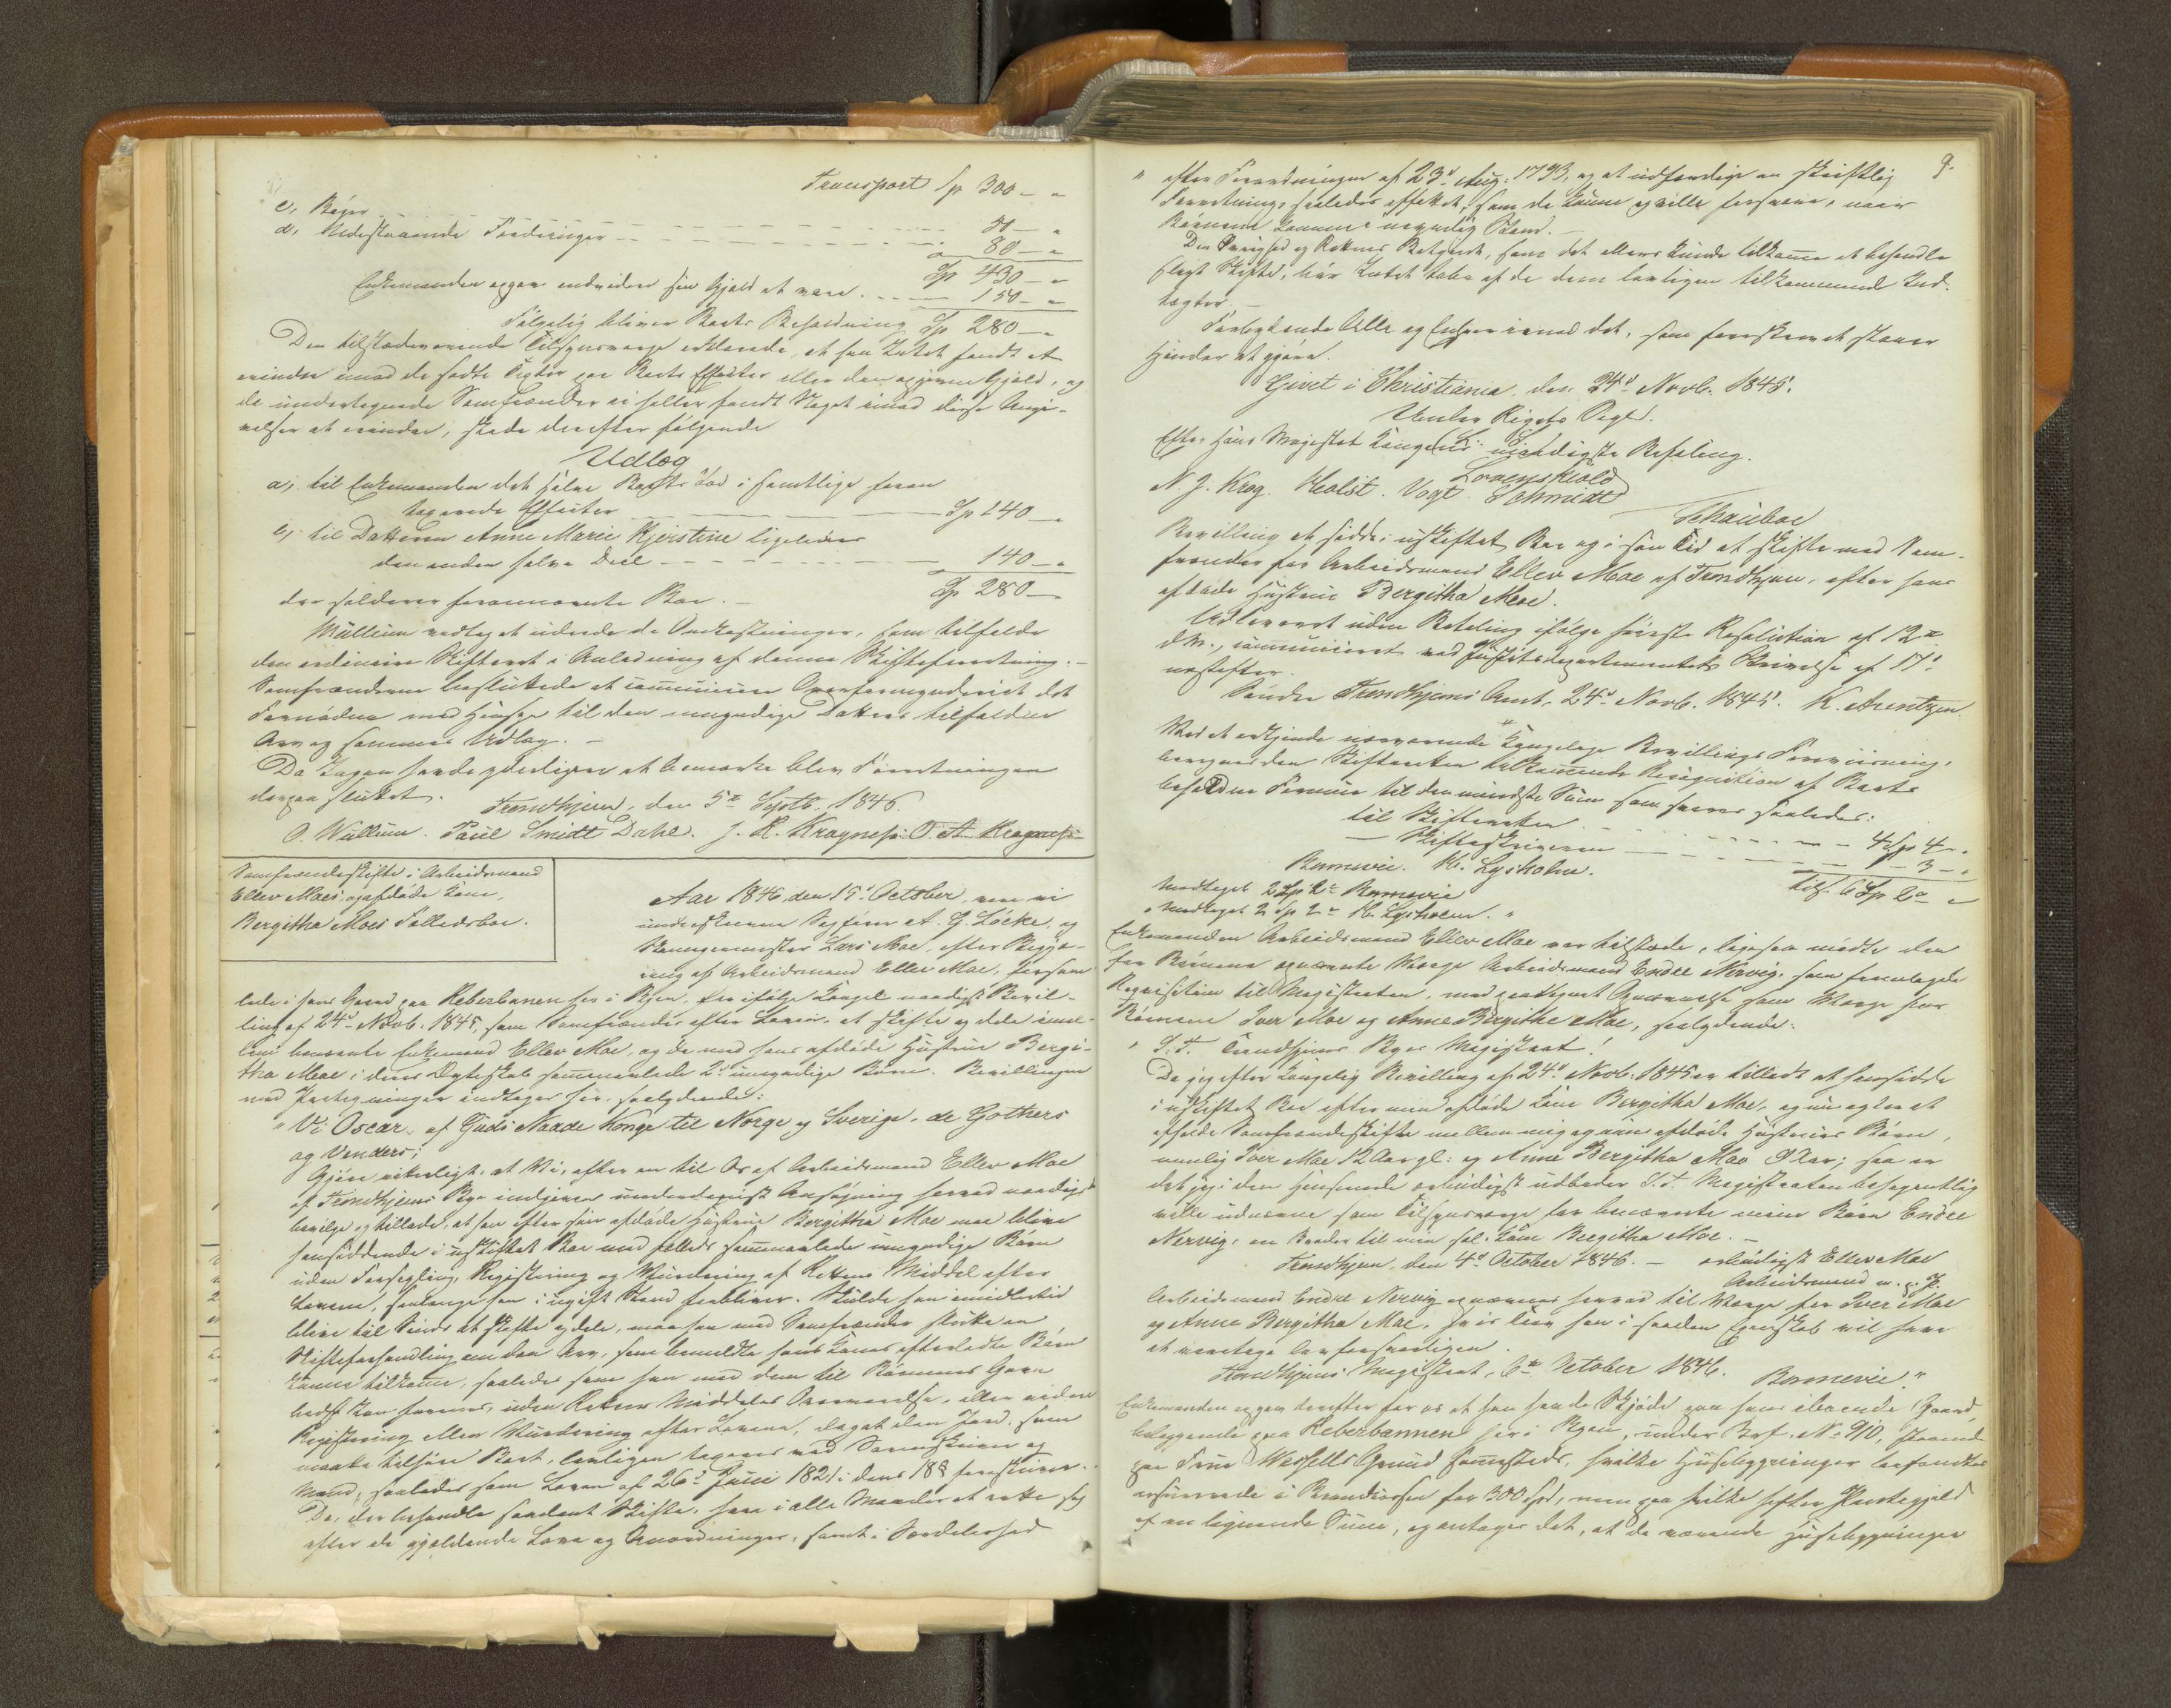 Transport Sp 300 – "
c, Bøger 50 – "
d, Udestaaende Fordringer 80 – "
Sp 430 – "
Enkemanden opgav endvidere sin Gjæld at være 150 – "
Følgelig bliver Boets Beholdning Sp 280 – "
Den tilstedeværende Tilsynsværge erklærede, at han Intet fandt at
erindre imod de satte Taxter paa Boets Effecter eller den opgivne Gjæld, og
de undertegnede Samfrænder ei heller fandt Noget imod disse Angi-
velser at erindre, skede derefter følgende
Udlæg
a, til Enkemanden det halve Boets Lod i samtlige foran
taxerede Effecter Sp 140 – "
b, til Datteren Anne Marie Kjerstine ligeledes
den anden halve Deel 140 – "
Sp 280 –
der solderer forannævnte Boe. –
Wullum vedtog at udrede de Omkostninger, som tilfalde
den ordinaire Skifteret i Anledning af denne Skifteforretning. –
Samfrænderne besluttede at communicere Overformynderiet det
Fornødne med Hensyn til den umyndige Datters tilfaldne
Arv og sammes Udlæg. –
Da Ingen havde yderligere at bemærke blev Forretningen
dermed sluttet.
Trondhjem, den 5te Septb. 1846.
O. Wullum. Paul Smidt Dahl. J. R. Kragness. O. A. Kragness
Samfrændeskifte i Arbeidsmand
Ellev Moes og afdøde Kone,
Bergitha Moes Fælledsboe.
Aar 1846 den 15de October, vare vi
underskrevne Sagfører A. G. Löcke, og
Lars Moe, efter Begjæ-
ring af Arbeidsmand Ellev Moe, forsam-
lede i hans Gaard paa Reberbanen her i Byen, for ifølge Kongel. naadigst Bevil-
ling af 24de Novb. 1845, som Samfrænder efter Loven, at skifte og dele imel-
lem benævnte Enkemand Ellev Moe, og de med hans afdøde Hustrue Bergi-
tha Moe i deres Ægteskab sammenavlede 2de umyndige Børn. Bevillingen
med Paategninger indtages her, saalydende:
"Vi Oscar, af Guds Naade Konge til Norge og Sverige, de Gothers
og Venders;
Gjøre vitterligt: at Vi, efter en til Os af Arbeidsmand Ellev Moe
af Trondhjems Bye indgiven underdanigst Ansøgning herved naadigst
bevilge og tillade, at han efter sin afdøde Hustrue Bergitha Moe maa blive
hensiddende i uskiftet Boe med fælleds sammenavlede umyndige Børn
uden Forsegling, Registering og Vurdering af Rettens Middel efter
Lovene, saalænge han i ugift Stand forbliver. Skulde han imidlertid
blive til Sinds at skifte og dele, maa han med Samfrænder slutte en
Skifteforhandling om den Arv, som bemeldte hans Kones efterladte Børn
kunne tilkomme, saaledes som han med dem til Børnenes Gavn
bedst kan forenes, uden Rettens Middels Overværelse, eller videre
Registering eller Vurdering efter Lovene, dog at den Jord, som
maatte tilhøre Boet, lovligen taxeres ved Sorenskriver og
Mænd, saaledes som Loven af 26de Juli 1821 i dens 18 § foreskriver.
De, der behandle saadant Skifte, have i alle Maader at rette sig
efter de gjældende Love og Anordninger, samt i Særdeleshed
9.
" efter Forordningen af 23de Aug: 1793, og at udfærdige en skriftlig
Forretning, saaledes affattet, som de kunne og ville forsvare, naar
Børnene komme i myndig Stand. –
Den Øvrighed og Rettens Betjente, som det ellers kunde tilkomme at behandle
sligt Skifte, bør Intet tabe af de dem lovligen tilkommende Ind-
tægter. –
Forbydende Alle og Enhver imod det, som foreskrevet staaer
Hinder at gjøre.
Givet i Christiania, den 24de Novb. 1845.
Under Rigets Segl.
Efter Hans Majestæt Kongens naadigste Befaling.
Løvenskiold
N. J. Krog. Holst. Vogt. Schmidt
Schaueboe
Bevilling at sidde i uskiftet Boe og i sin Tid at skifte med Sam-
frænder for Arbeidsmand Ellev Moe af Trondhjem, efter hans
afdøde Hustrue Bergitha Moe.
Udleveret uden Betaling ifølge høieste Resolution af 12te
d. M., communiceret ved Justitsdepartementets Skrivelse af 17de
næstefter.
Søndre Trondhjems Amt, 24de Novb. 1845. K. Arentzen.
Ved at erkjende nærværende Kongelige Bevillings Foreviisning,
beregnes den Skifteretten tilkommende Recognition af Boets
beholdne Formue til den mindste Sum som svares saaledes:
til Skifteretten 4 Sp 4 – "
– Skifteskriveren 1 – 3 – "
Tils. 6 Sp 2 – "
Bonnevie. K. Lysholm.
Modtaget 2 Sp 2 – Bonnevie
Modtaget 2 Sp 2 – K. Lysholm. "
Enkemanden Arbeidsmand Ellev Moe var tilstede, ligesaa mødte den
for Børnene opnævnte Værge Arbeidsmand Endre Nervig, som fremlagde
Requisition til Magistraten, med paategnet Opnævnelse som Værge for
Børnene Iver Moe og Anne Bergitha Moe, saalydende:
" S. T. Trondhjems Byes Magistrat!
Da jeg efter Kongelig Bevilling af 24de Novb: 1845 er tilladt at hensidde
i uskiftet Boe efter min afdøde Kone Bergitha Moe, og nu agter at
afholde Samfrændeskifte mellem mig og min afdøde Hustrues Børn,
nemlig Iver Moe 12 Aar gl: og Anne Bergitha Moe 9 Aar; saa er
det jeg i den Henseende ærbødigst udbeder S. T. Magistraten behagentlig
ville udnævne som Tilsynsværge for benævnte mine Børn Endre
Nervig, en Broder til min sal. Kone Bergitha Moe. –
Trondhjem, den 4de October 1846. – ærbødigst Ellev Moe
Arbeidsmand m. p. P.
Arbeidsmand Endre Nervig opnævnes herved til Værge for Iver Moe
og Anne Bergitha Moe, hvis Tarv han i saadan Egenskab vil have
at varetage lovforsvarligen.
Trondhjems Magistrat, 6te October 1846. Bonnevie "
Enkemanden opgav derefter for os at han havde Skjøde paa hans iboende Gaard,
beliggende paa Reberbannen her i Byen, under Brf. No 90, staaende
paa Frue Wessells Grund sammesteds, hvilke Huusbygninger befandtes
assurerede i Brandcassen for 300 Spd, men paa hvilke hefter Pantegjæld
af en lignende Summa, og antages det, at de nævnte Huusbygninger